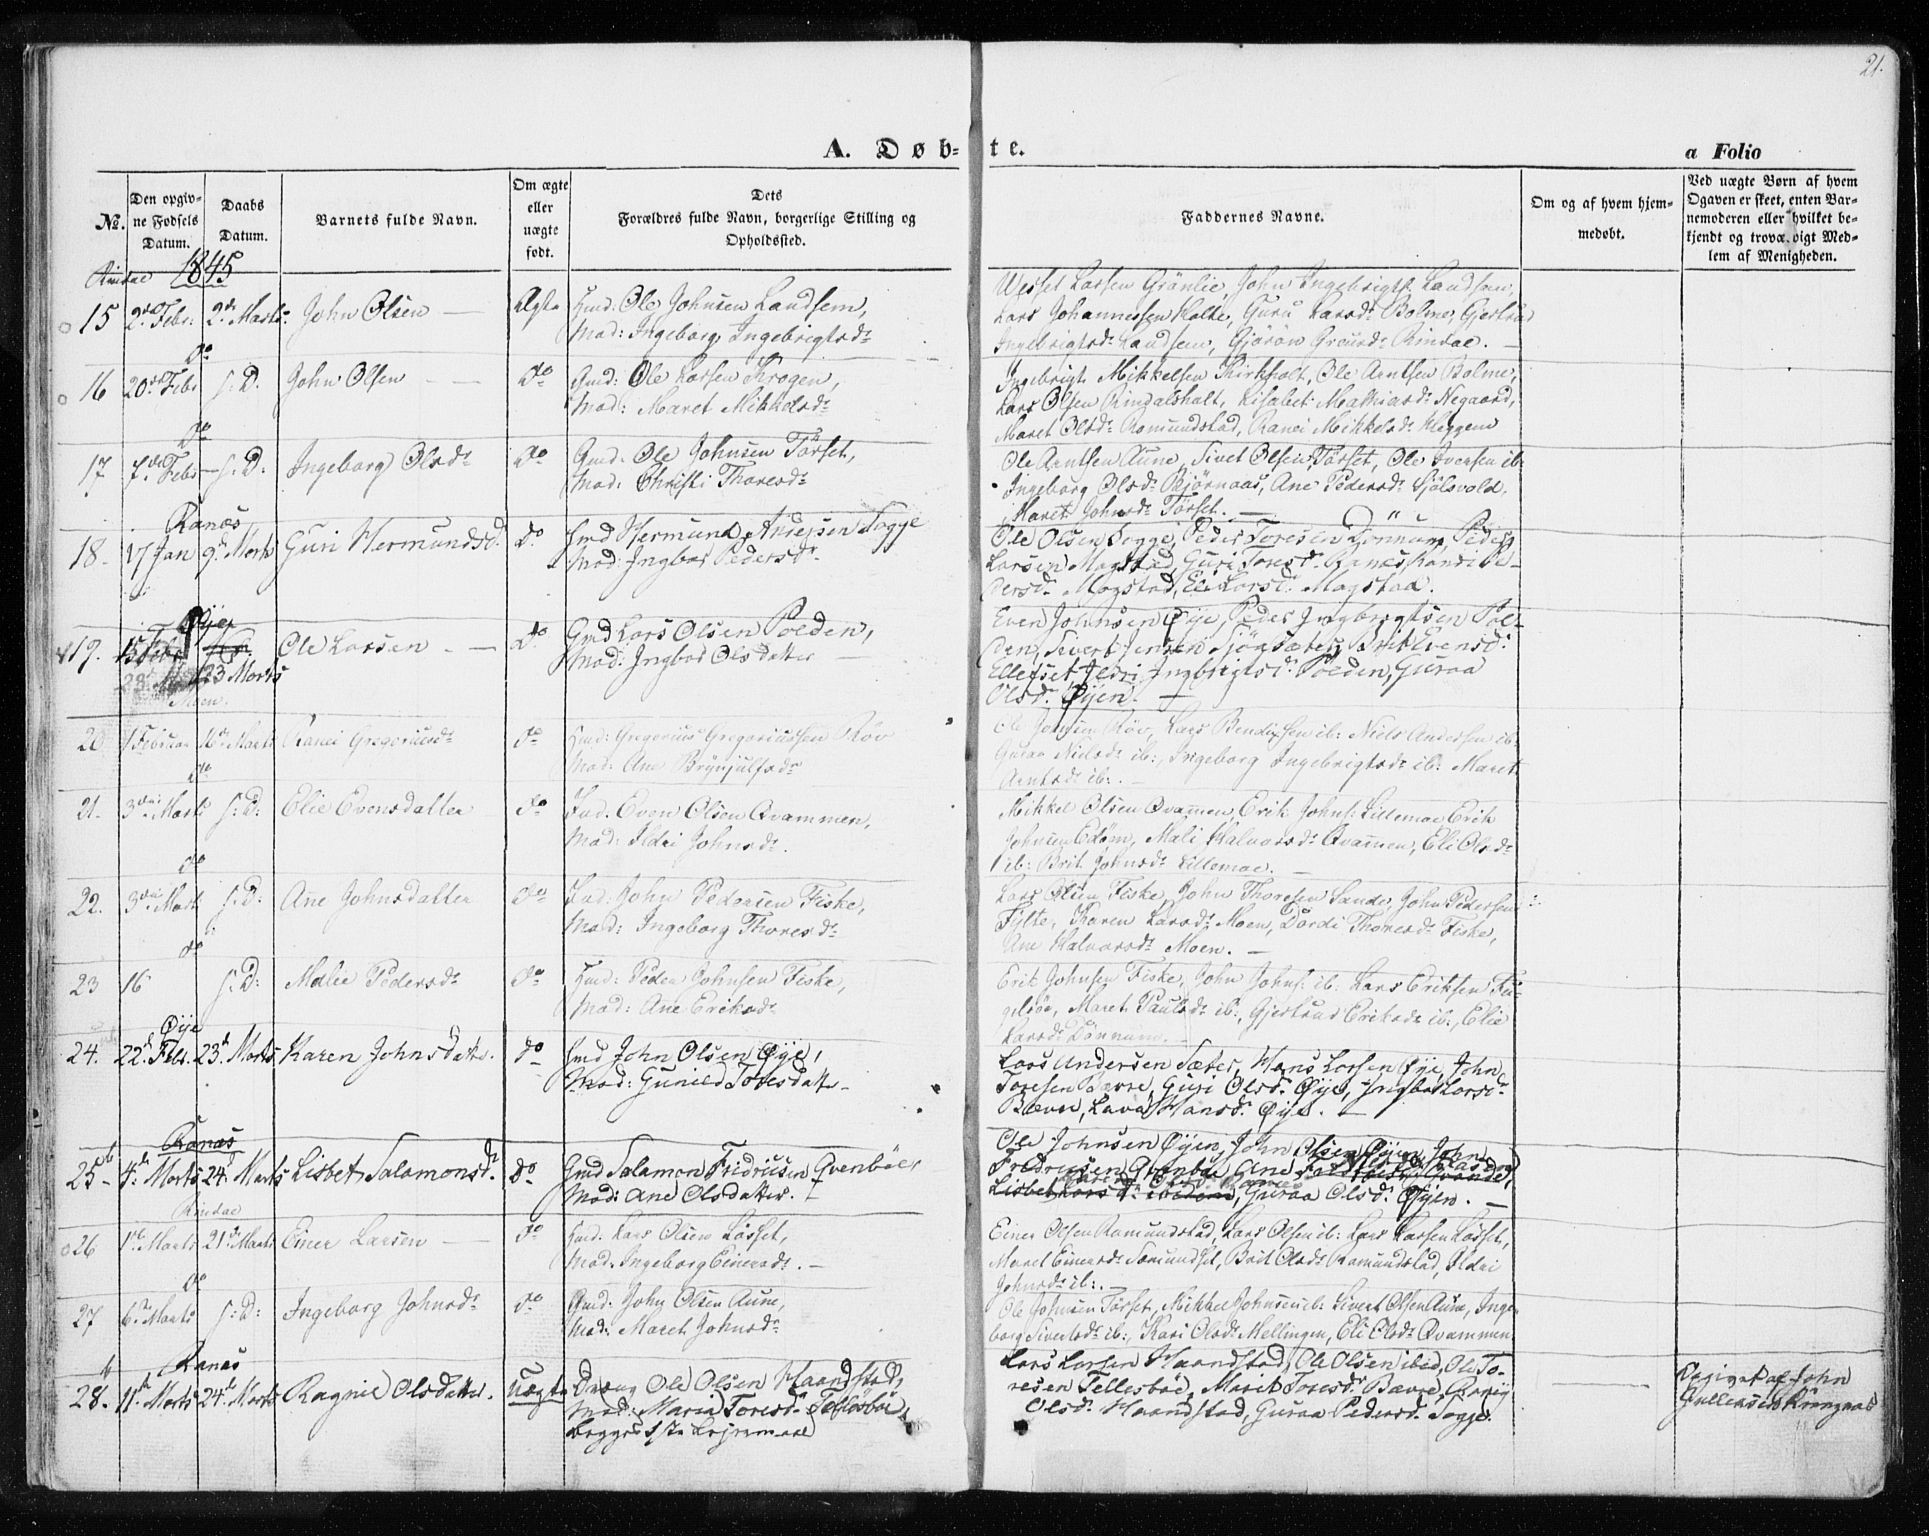 21.
A. Døb-te.
a Folio
No.
Den opgiv-
ne Fødsels
Datum.
Daabs
Datum.
Barnets fulde Navn.
Om ægte
eller
uægte
født.
Dets
Forældres fulde Navn, borgerlige Stilling og
Opholdssted.
Faddernes Navne.
Om og af hvem hjem-
medøbt.
Ved uægte Børn af hvem
Opgaven er skeet, enten Bar-
nemoderen eller hvilket be-
kjendt og troværdigt Med-
lem af Menigheden.
Rindal 1845
15 2den Febr: 2den Marts John Olsen — Ægte Huusmd: Ole Johnsen Landsem,
Mod: Ingeborg Ingebrigtsdr
Wessel Larsen Grönlie, John Ingebrigts. Landsem,
Lars Johannessen Holte, Guru Larsdr Bolme, Gjertrud
Ingebrigtsdr Landsem, Rindal. —
do
16 20de Febr S:D: John Olsen — do Gmd: Ole Larsen Krogen,
Mod: Maret Mikkelsdr
Ingebrigt Mikkelsen Kirkholt, Ole Arntsen Bolme,
Lars Olsen Rindalsholt, Lisabet Mathiasdr Negaard,
Maret Olsdr Romundstad, Ranei Mikkelsdr Heggem
do
17 7de Febr S:D: Ingeborg Olsdr do Gmd: Ole Johnsen Törset,
Mod: Christi Thoresdr
Ole Arntsen Aune, Sivert Olsen Törset, Ole Iversen ib:
Ingeborg Olsdr Bjørnaas, Ane Pedersdr Sjølsvold,
Maret Johnsdr Törset. —
Ranes
18. 17 Jan 9de Marts Guri Hermundsd. do Hmd Hermund Andersen Sogge
Mod: Ingbor Pedersdr
Ole Olsen Sogge, Peder Toresen Dönnum, Peder
Larsen Mogstad, Guri Toresd. Ranes, Randi Pe-
dersd. Mogstad, Eli Larsd. Mogstad.
Øye
19. 15 Febr 23 Marts Ole Larsen — do Gmd Lars Olsen Polden,
Mod: Ingbor Olsdatter —
Even Johnsen Øye, Peder Ingbrigtsen Pol-
den, Sivert Jensen Sjöasæter, Brit Evensd.
Ellefset, Ildri Ingbrigtsd. Polden, Guraa
Olsd. Øyen. —
Moen.
20 1 Februar 16de Marts Ranei Gregoriusdr do Hmd: Gregorius Gregoriussen Röv
Mod: Ane Brynjulfsdr
Ole Johnsen Röv, Lars Bendixsen ib: Niels Andersen ib:
Guraa Nielsdr ib:, Ingeborg Ingebrigtsdr ib: Maret
Arntsdr ib:. —
do
21. 3die Marts S:D: Elie Evensdatter do Ind. Even Olsen Qvammen,
Mod: Ildri Johnsdr.
Mikkel Olsen Qvammen, Erik Johns: Lillemoe Erik
Johnsen Edöm, Mali Halvorsdr Qvammen, Eli Olsdr
ib: Brit Johnsdr Lillemoe. —
do
22. 3die Marts S:D: Ane Johnsdatter do Ind: John Pedersen Fiske,
Mod: Ingeborg Thoresdr
Lars Olsen Fiske, John Thoresen Sande, John Pedersen
Fylte, Karen Larsdr Moen, Dordi Thoresdr Fiske,
Ane Halvorsdr Moen. —
do
23 16 S:D: Malie Pedersdr do Hmd: Peder Johnsen Fiske,
Mod: Ane Eriksdr
Erik Johnsen Fiske, John Johns: ib: Lars Eriksen Fu-
gelsöe, Maret Paulsdr ib:, Gjertrud Eriksdr ib:, Elie
Larsdr Dönnum.
Øye
24. 22d. Febr. 23d. Marts Karen Johnsdatter. do Hmd John Olsen Øye,
Mod: Gunild Toresdatter —
Lars Andersen Sæter, Hans Larsen Øye, John
Toresen Bævre, Guri Olsd. Øye, Ingbor Larsd.
Bævre, Hansd. Øye. —
Ranes
25 4d. Marts 24d. Marts Lisbet Salamonsd. do Gmd Salamon Fredriksen Qvenböe,
Mod: Ane Olsdatter.
Ole Johnsen Øyen, John Olsen Øyen, John
Fredriksen Qvenböe, Ane
Lisbet Larsd. ibidem, Guraa Olsd. Øyen. —
Rindal
26 1ste Marts 21de Marts Einer Larsen — do Hmd: Lars Olsen Løset,
Mod: Ingeborg Einersdr. —
Einer Olsen Romundstad, Lars Olsen ib: Lars Larsen Løset,
Maret Einersdr Romundset, Brit Olsdr Romundstad, Ildri
Johnsdr ib:. —
do
27 6te Marts S:D: Ingeborg Johnsdr do Gmd: John Olsen Aune,
Mod: Maret Johnsdr
Ole Johnsen Törset, Mikkel Johnsen ib: Sivert Olsen Aune, Inge-
borg Sivertsdr ib:, Kari Olsdr Mellingen, Eli Olsdr Qvammen
Ranes
28. 11d. Marts 24d. Marts Ragnil Olsdatter. Uægte Ole Olsen Haandstad,
Mod: Maria Toresd. Tellesböe,
begges 1ste Leiermaal
Lars Larsen Haandstad, Ole Olsen ibid, Ole To-
resen Tellesböe, Marit Toresd. Bævre, Ranig
Olsd. Haandstad, Guraa Pedersd. Sogge.
Opgivet af John
Gullensen Kringnæs